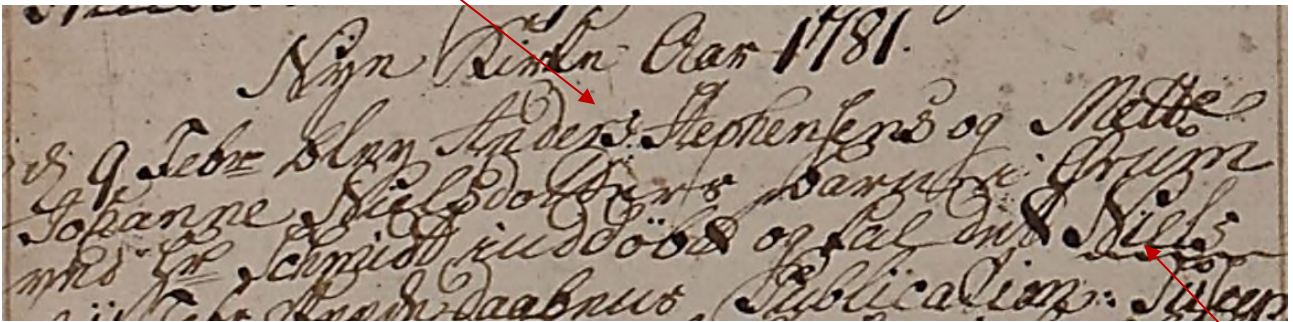 Nye Kirke Aar 1781.
d 9 Febr blev Anders Stephensens og Mette
Johanne Nielsdotters barn i Grum
ved Hr Schmidt inddöbt og kal det Niels
dagbneus Publication: